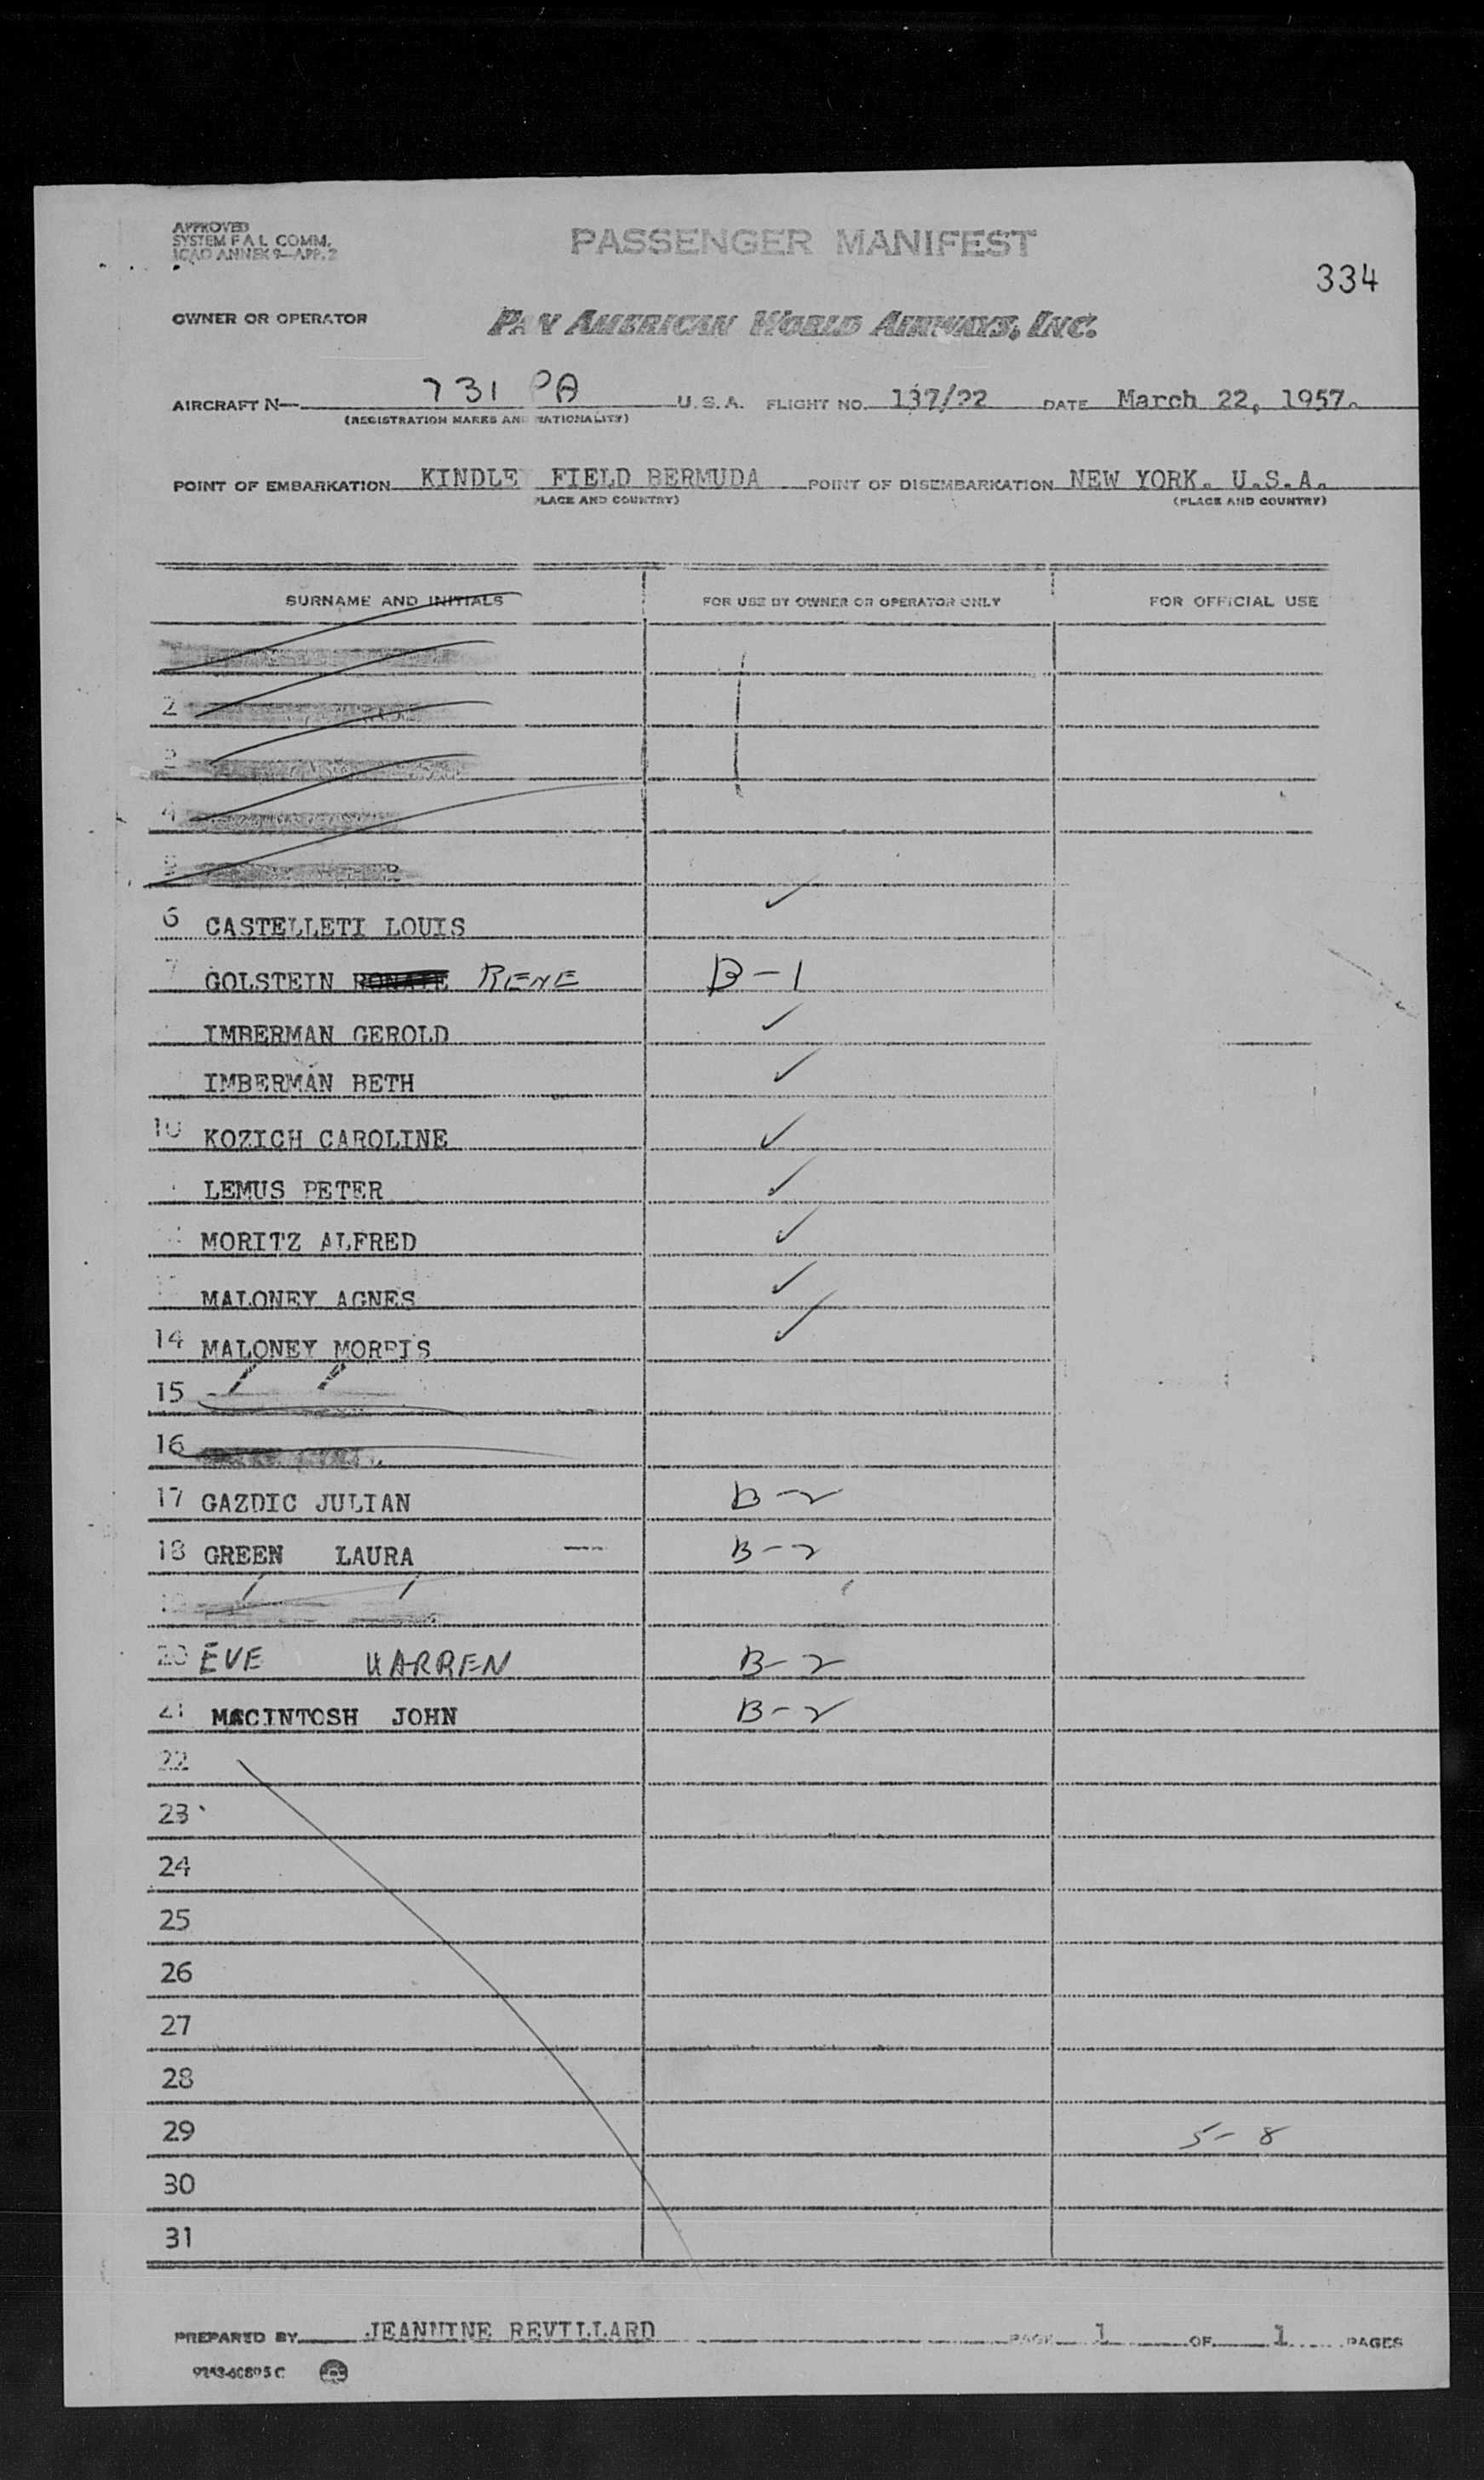 APPROVED
SYSTEM F A L COMM.
ICAO ANNEX 9-APP. 2
PASSENGER MANIFEST
334
OWNER OR OPERATOR PAN AMERICAN WORLD AIRWAYS, INC.
AIRCRAFT N- 731 PA U.S.A. FLIGHT NO. 137/22 DATE March 22, 1957.
(REGISTRATION MARKS AND NATIONALITY)
POINT OF EMBARKATION KINDLEY FIELD BERMUDA POINT OF DISEMBARKATION NEW YORK. U.S.A.
(PLACE AND COUNTRY) (PLACE AND COUNTRY)
SURNAME AND INITIALS FOR USE BY OWNER OR OPERATOR ONLY FOR OFFICIAL USE
2
3
4
5
6 CASTELLETI LOUIS ✓
7 GOLSTEIN RENE B-1
IMBERMAN GEROLD ✓
IMBERMAN BETH ✓
10 KOZICH CAROLINE ✓
LEMUS PETER ✓
MORITZ ALFRED ✓
MALONEY AGNES ✓
14 MALONEY MORRIS ✓
15
16
17 GAZDIC JULIAN B-2
18 GREEN LAURA B-2
19
20 EVE WARREN B-2
21 MACINTOSH JOHN B-2
22
23
24
25
26
27
28
29 5-8
30
31
PREPARED BY JEANNINE REVILLARD PAGE 1 OF 1 PAGES